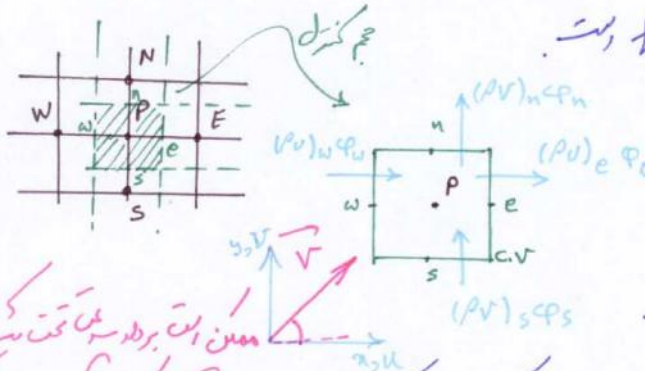 حجم کنترل
است.
N
W w n P e E
s
S
(ρv)n φn
n
(ρu)w φw
(ρu)e φ
P
w e
s
C.V
y,v
V
(ρv)s φs
x,u
ممکن است بردار سرعت تحت